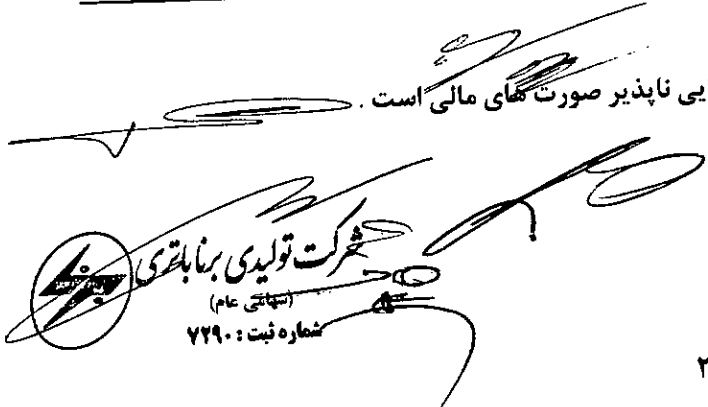 یی ناپذیر صورت های مالی است .
شرکت تولیدی برنا باتری
(سهامی عام)
شماره ثبت : ۷۲۹۰
۲